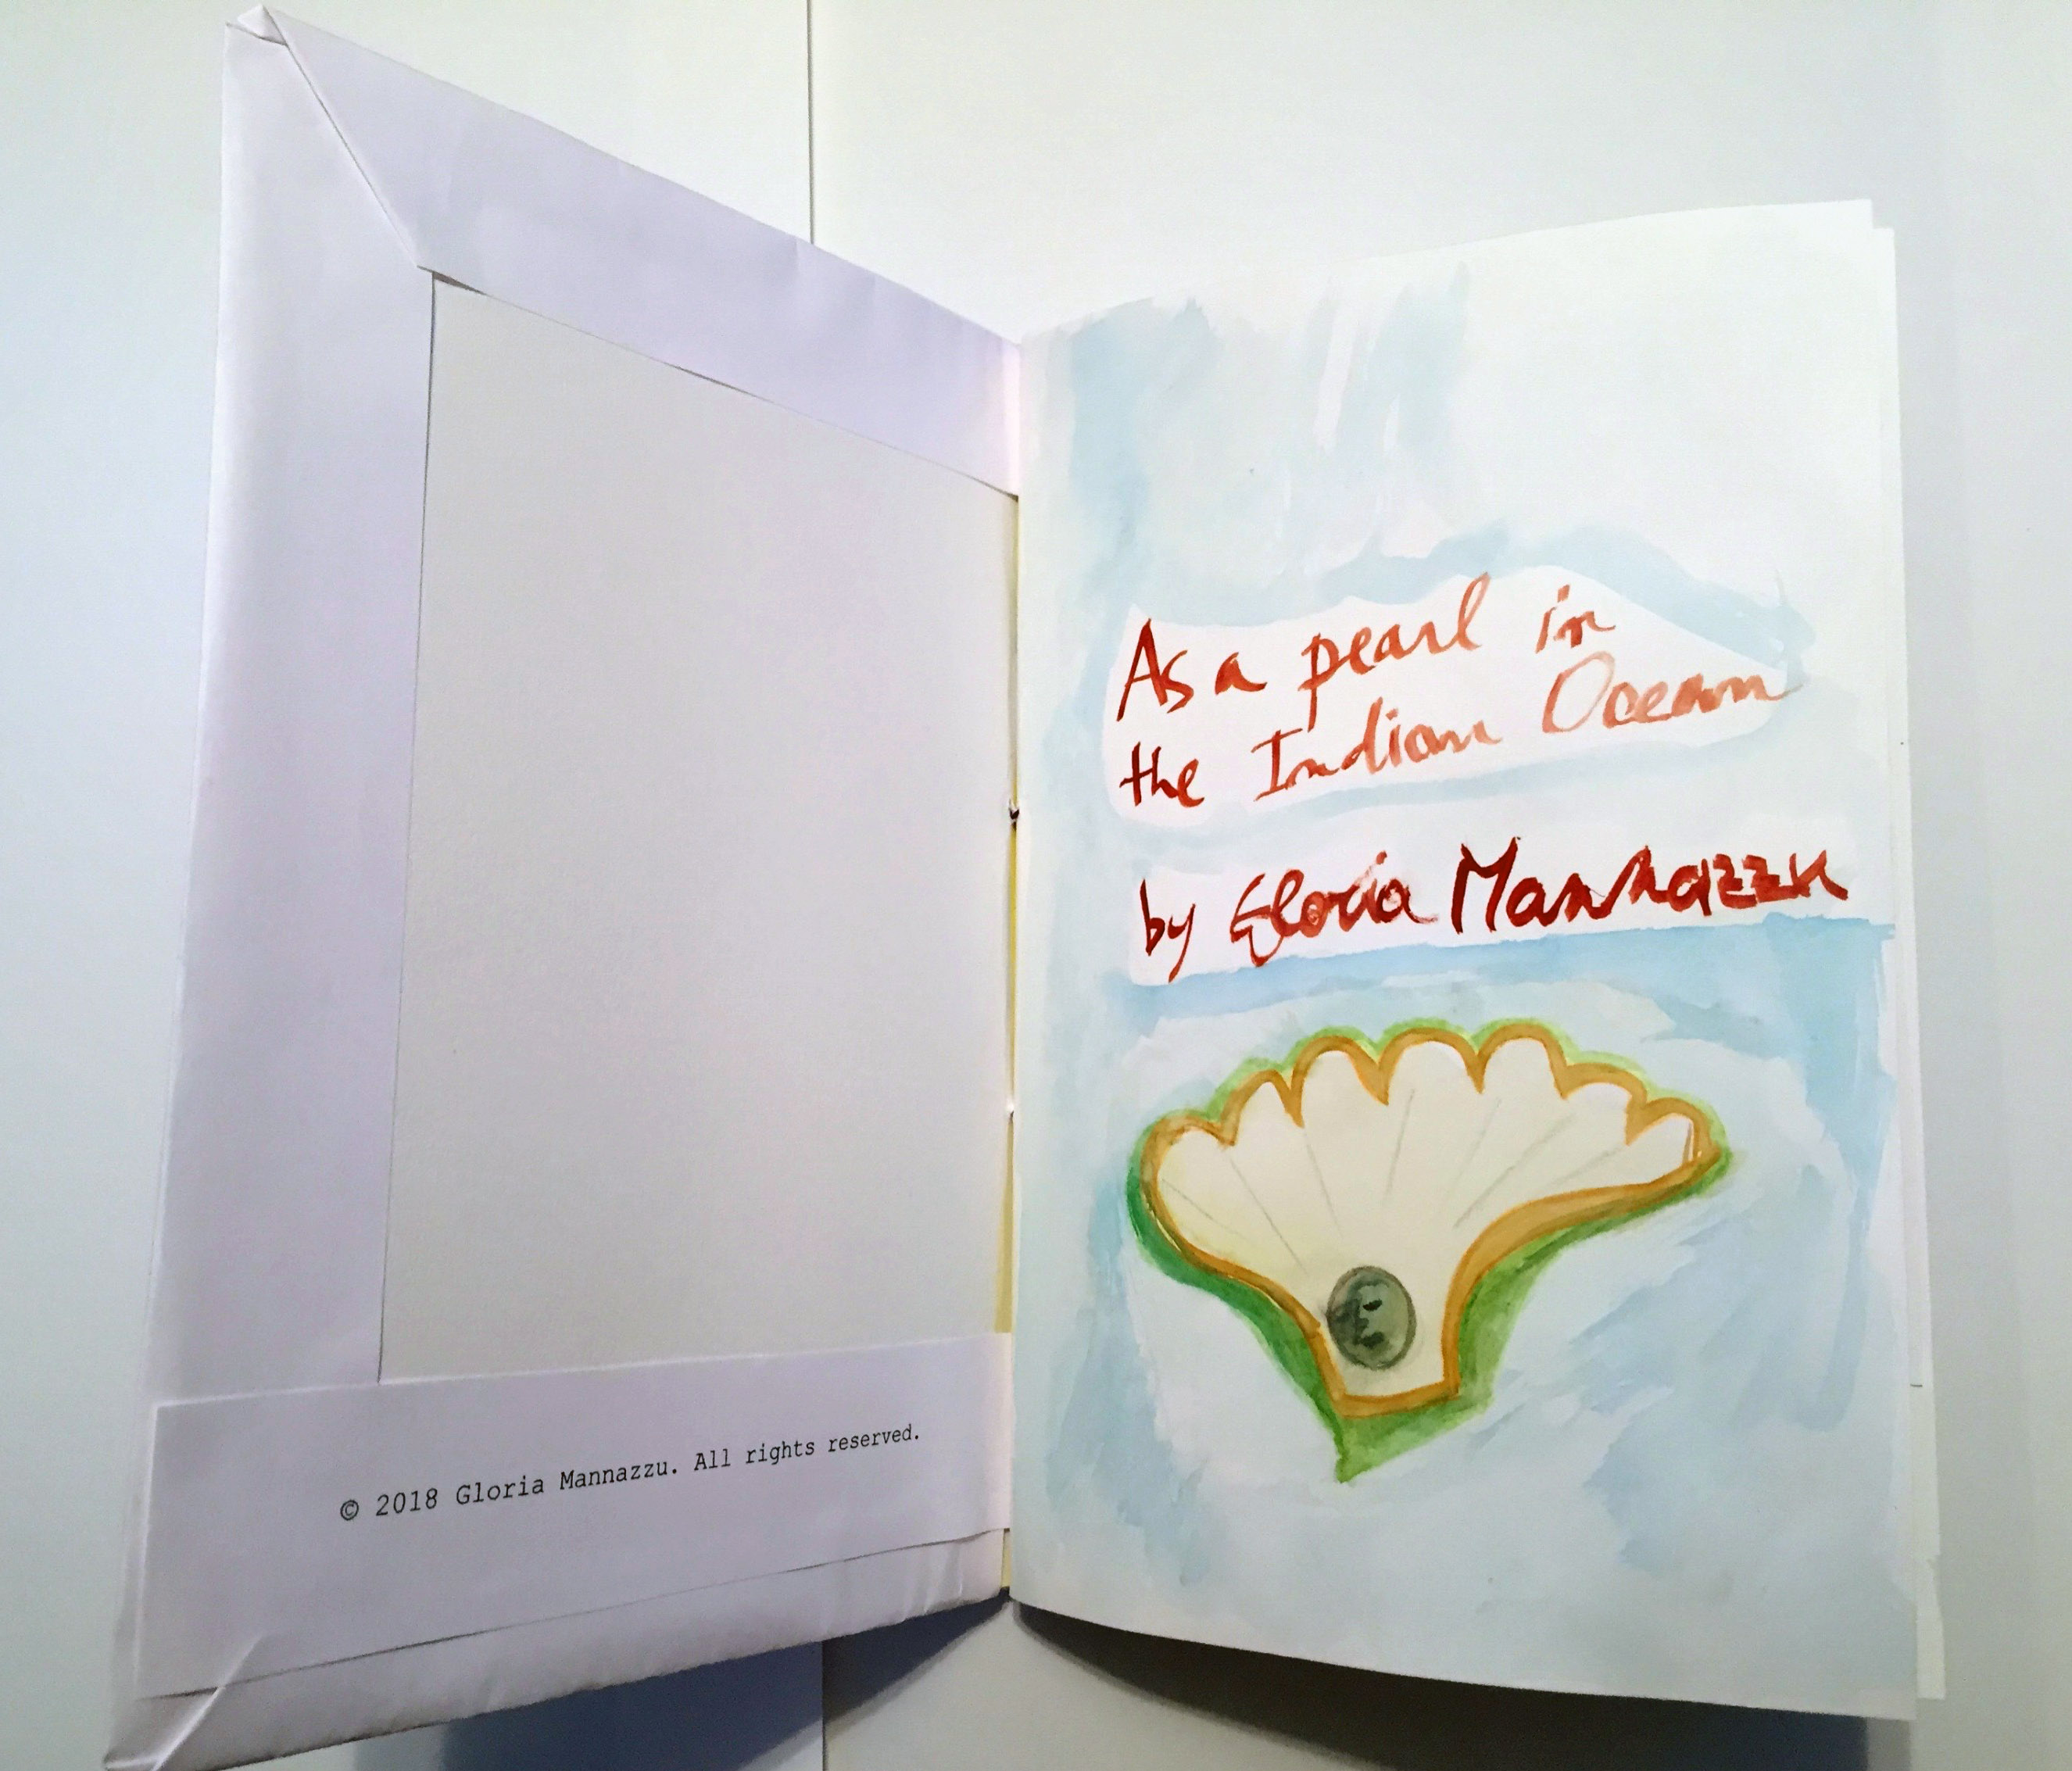 © 2018 Gloria Mannazzu. All rights reserved.
As a pearl in
the Indian Ocean
by Gloria Mannazzu